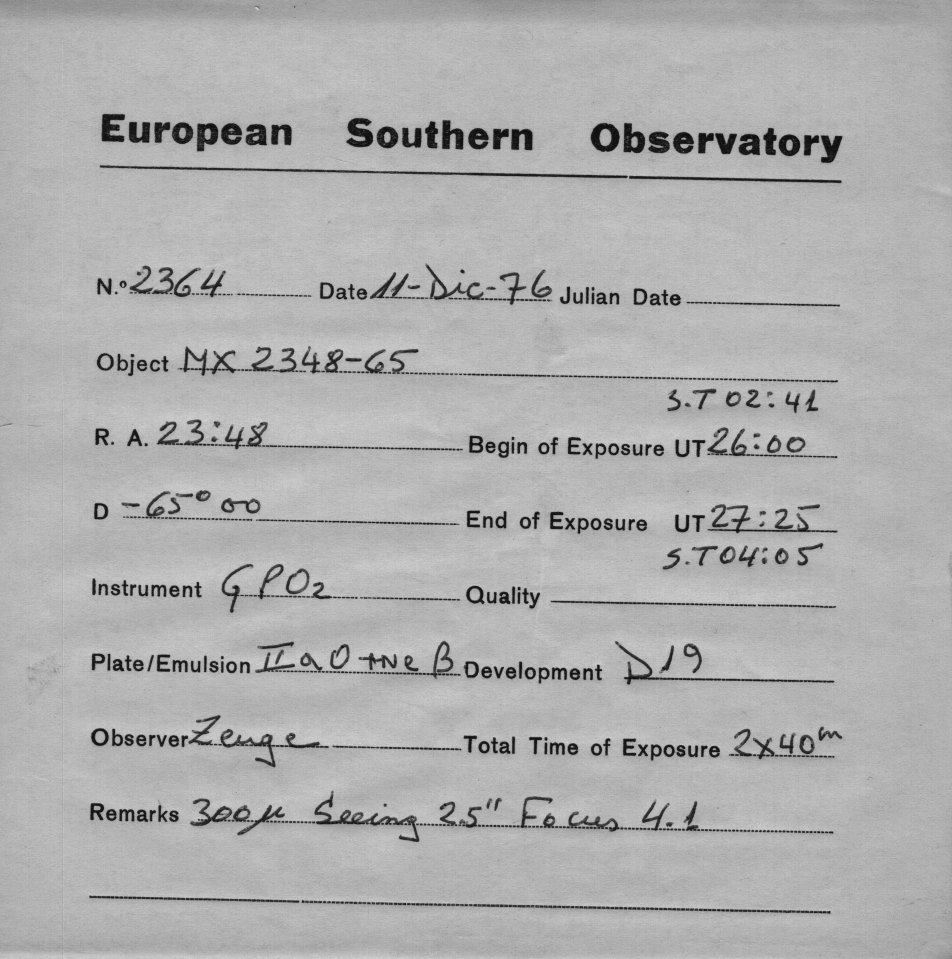 European Southern Observatory
N.º 2364 Date 11-Dic-76 Julian Date
Object MX 2348-65
S.T 02:41
R. A. 23:48 Begin of Exposure UT 26:00
D -65° 00 End of Exposure UT 27:25
S.T 04:05
Instrument GPO2 Quality
Plate/Emulsion IIaO Development D19
Observer Zeuge Total Time of Exposure 2x40m
Remarks 300μ Seeing 2.5" Focus 4.1